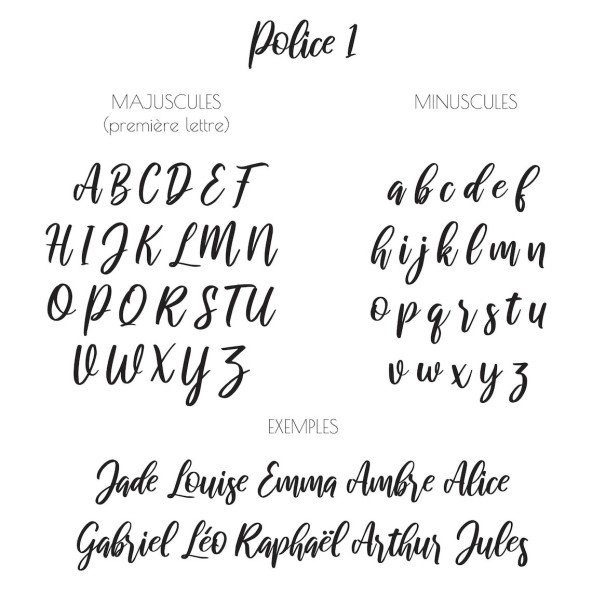 Police 1
MAJUSCULES
(première lettre)
A B C D E F
H I J K L M N
O P Q R S T U
V W X Y Z
MINUSCULES
a b c d e f
h i j k l m n
o p q r s t u
v w x y z
EXEMPLES
Jade Louise Emma Ambre Alice
Gabriel Léo Raphaël Arthur Jules